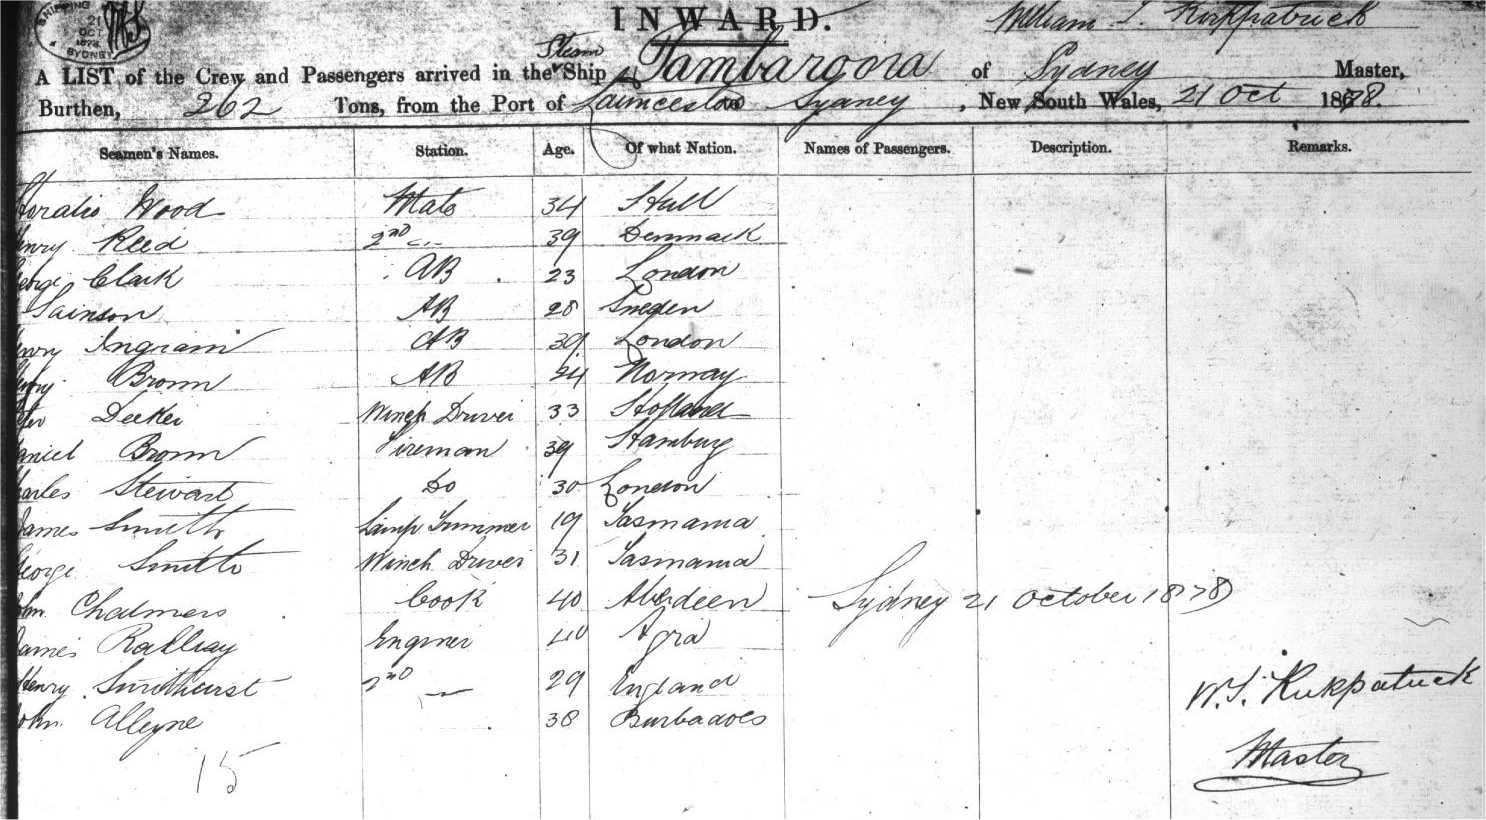 SHIPPING 21 OCT 1878 SYDNEY
INWARD.
William S. Kirkpatrick
Steam
A LIST of the Crew and Passengers arrived in the Ship Tambaroora of Sydney Master,
Burthen, 262 Tons, from the Port of Launceston Sydney, New South Wales, 21 Oct 1878.
Seamen's Names. Station. Age. Of what Nation. Names of Passengers. Description. Remarks.
Horatio Wood Mate 34 Hull
enry Reed 2nd 39 Denmark
eorge Clark AB 23 London
Sainson AB 28 Sweden
enry Ingram AB 39 London
Brown AB 24 Norway
Decker Winch Driver 33 Holland
aniel Brown Fireman 39 Hamburg
harles Stewart Do 30 London
James Smith Lamp Trimmer 19 Tasmania
George Smith Winch Driver 31 Tasmania
ohn Chalmers Cook 40 Aberdeen
Sydney 21 October 1878
James Engineer 40 Agra
Henry Smithurst 2nd 29 England
W. S. Kirkpatrick
John Alleyne 38 Burbadoes
Master
15